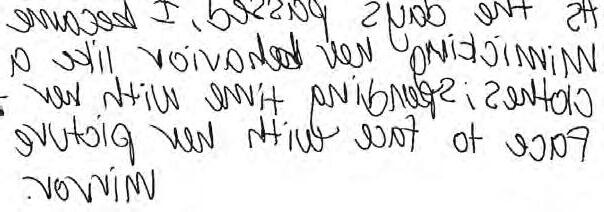 As the days passed, I became
Mimicking her behavior like a
clothes; spending time with her
Face to face with her picture
mirror.